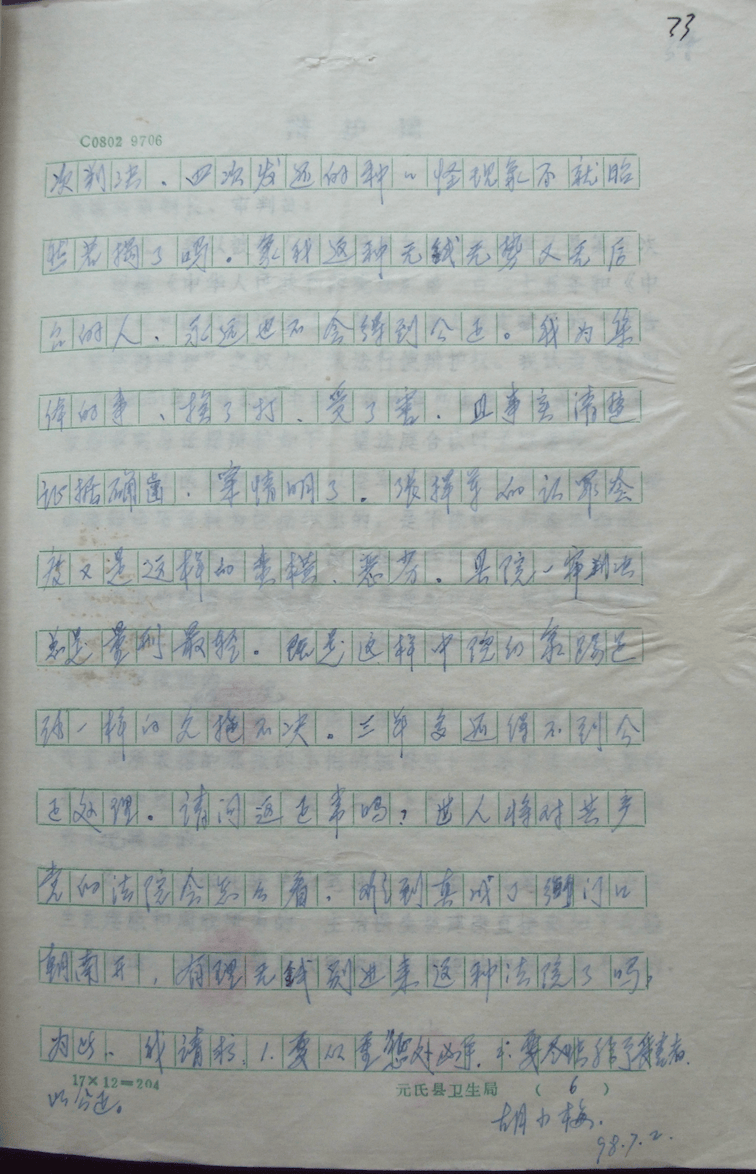 73
C0802 9706
次判决、四次发还的种种怪现象不就昭
然若揭了吗。象我这种无钱无势又无后
台的人、永远也不会得到公正。我为集
体的事、挨了打、受了害、且事实清楚
证据确凿、案情明了。张择军的认罪态
度又是这样的蛮横、恶劣。县院一审判决
总是量刑最轻。既是这样中院的
一样的久拖不决。三年多还得不到公
正处理。请问这正常吗？世人将对共产
党的法院会怎么看。难到真成了衙门口
朝南开，有理无钱别进来这种法院了吗？
为此、我请求：1.要从重惩处凶手。2.要
受害者
以公正。
17×12=204
元氏县卫生局 （ 6 ）
胡小梅.
98.7.2.